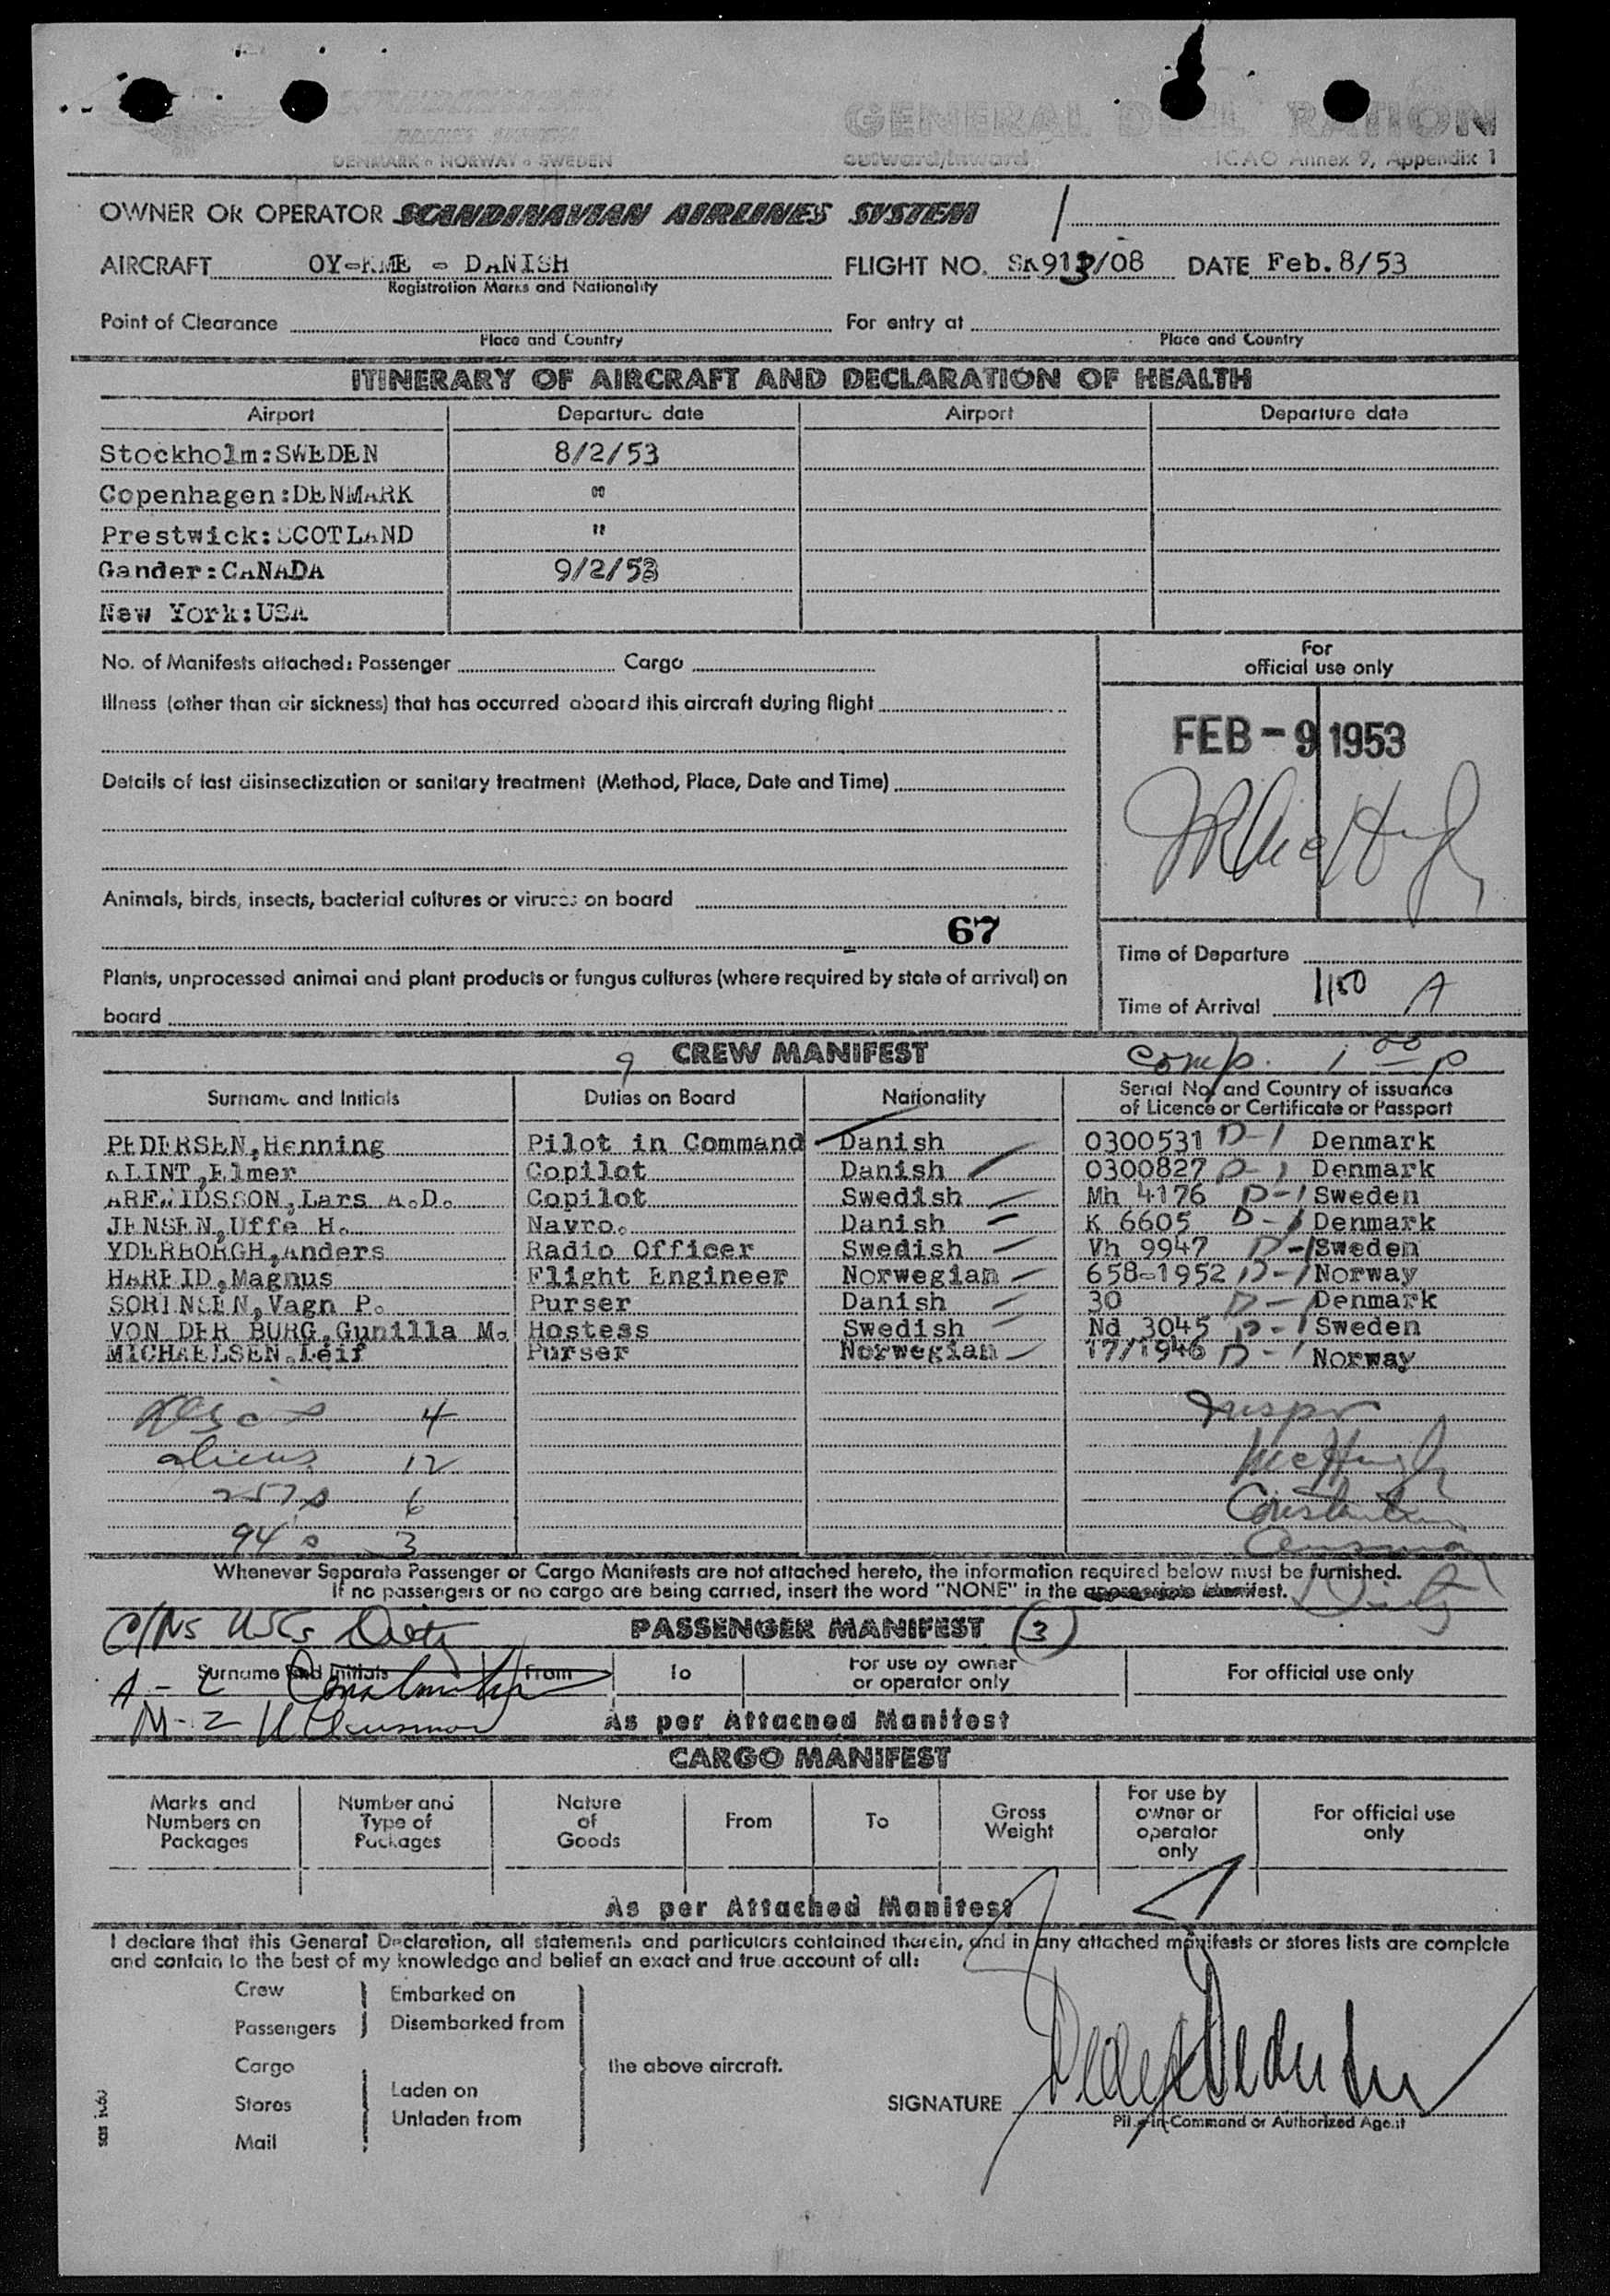 GENERAL DECLARATION
DENMARK · NORWAY · SWEDEN outward/inward ICAO Annex 9, Appendix 1
OWNER OR OPERATOR SCANDINAVIAN AIRLINES SYSTEM
AIRCRAFT OY-KME - DANISH FLIGHT NO. SK913/08 DATE Feb.8/53
Registration Marks and Nationality
Point of Clearance For entry at
Place and Country Place and Country
ITINERARY OF AIRCRAFT AND DECLARATION OF HEALTH
Airport Departure date Airport Departure date
Stockholm:SWEDEN 8/2/53
Copenhagen:DENMARK "
Prestwick:SCOTLAND "
Gander:CANADA 9/2/53
New York:USA
No. of Manifests attached: Passenger Cargo
For
official use only
Illness (other than air sickness) that has occurred aboard this aircraft during flight
FEB - 9 1953
Details of last disinsectization or sanitary treatment (Method, Place, Date and Time)
Animals, birds, insects, bacterial cultures or viruses on board
67
Time of Departure
Plants, unprocessed animal and plant products or fungus cultures (where required by state of arrival) on
board
Time of Arrival 1150 A
9 CREW MANIFEST Comp. 1 00 p
Surname and Initials Duties on Board Nationality Serial No. and Country of issuance
of Licence or Certificate or Passport
PEDERSEN,Henning Pilot in Command Danish 0300531 D-1 Denmark
KLINT,Elmer Copilot Danish 0300827 D-1 Denmark
AREWIDSSON,Lars A.D. Copilot Swedish Mh 4176 D-1 Sweden
JENSEN,Uffe H. Navro. Danish K 6605 D-1 Denmark
YDERBORGH,Anders Radio Officer Swedish Vh 9947 D-1 Sweden
HAREID,Magnus Flight Engineer Norwegian 658-1952 D-1 Norway
SORENSEN,Vagn P. Purser Danish 30 D-1 Denmark
VON DER BURG,Gunilla M. Hostess Swedish Nd 3045 D-1 Sweden
MICHAELSEN.Leif Purser Norwegian 17/1946 D-1 Norway
4 Inspr
aliens 12 McHugh
257s 6
94's 3
Whenever Separate Passenger or Cargo Manifests are not attached hereto, the information required below must be furnished.
If no passengers or no cargo are being carried, insert the word "NONE" in the appropriate Manifest.
PASSENGER MANIFEST (3)
Surname and Initials From To For use by owner
or operator only For official use only
A - 2
M-2
As per Attached Manifest
CARGO MANIFEST
Marks and
Numbers on
Packages Number and
Type of
Packages Nature
of
Goods From To Gross
Weight For use by
owner or
operator
only For official use
only
As per Attached Manifest
I declare that this General Declaration, all statements and particulars contained therein, and in any attached manifests or stores lists are complete
and contain to the best of my knowledge and belief an exact and true account of all:
Crew Embarked on
Passengers Disembarked from
Cargo the above aircraft.
Laden on
Stores SIGNATURE
Unladen from
Pilot-in-Command or Authorized Agent
Mail